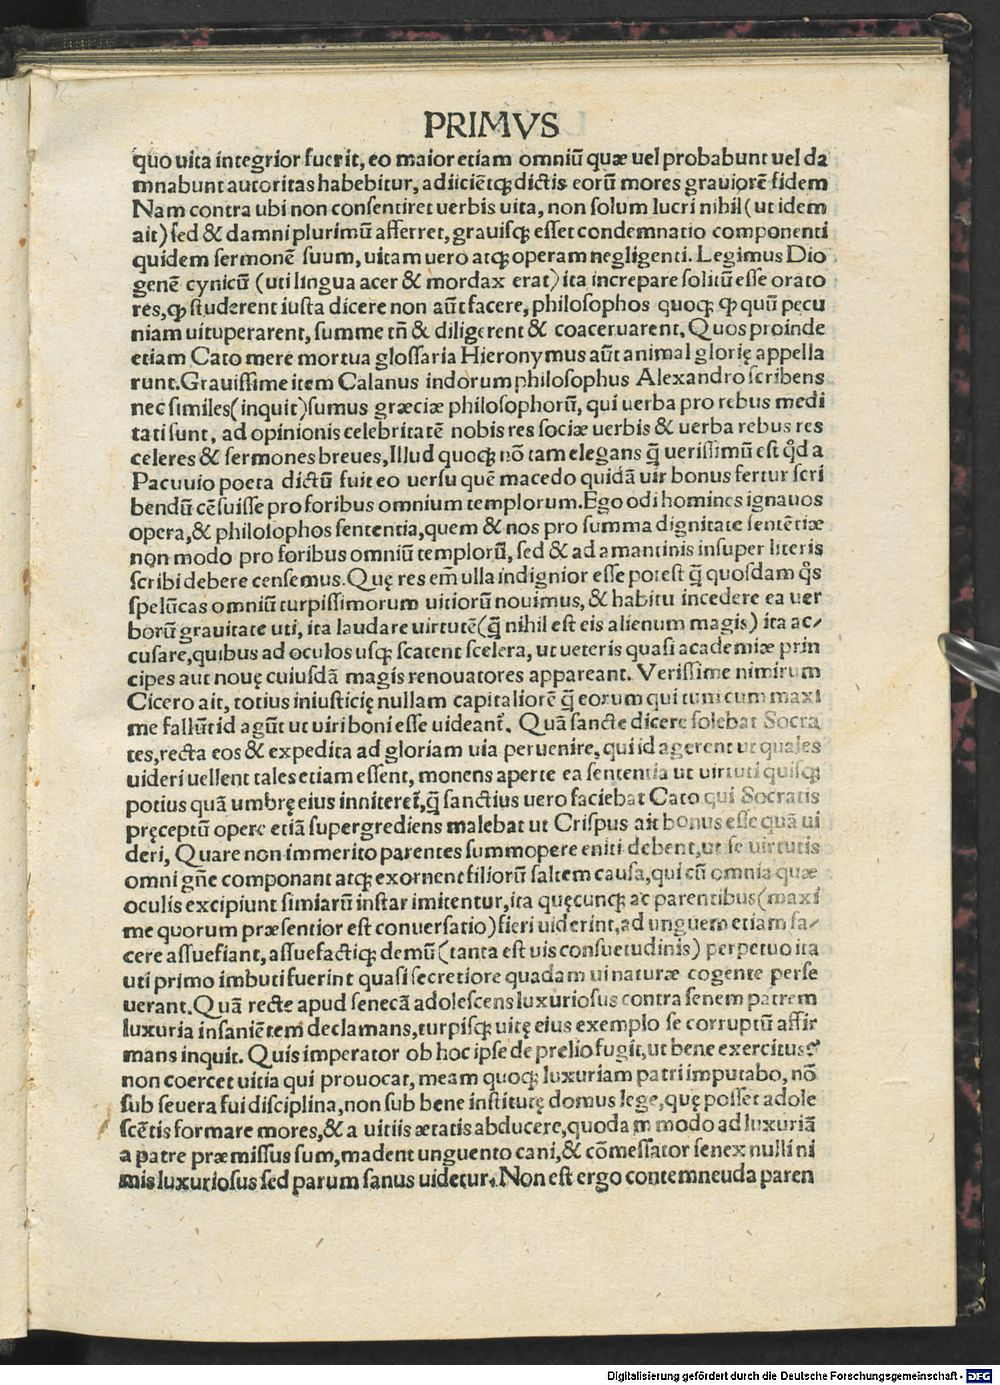 PRIMVS
quo uita integrior fuerit, eo maior etiam omniū quæ uel probabunt uel da
mnabunt autoritas habebitur, adiiciētꝗ; dictis eorū mores grauiorē fidem
Nam contra ubi non consentiret uerbis uita, non solum lucri nihil (ut idem
ait) sed & damni plurimū afferret, grauisꝗ; esset condemnatio componenti
quidem sermonē suum, uitam uero atꝗ; operam negligenti. Legimus Dio
genē cynicū (uti lingua acer & mordax erat) ita increpare solitū esse orato
res, ꝙ studerent iusta dicere non aūt facere, philosophos quoꝗ; ꝙ quū pecu
niam uituperarent, summe tñ & diligerent & coaceruarent. Quos proinde
etiam Cato mere mortua glossaria Hieronymus aūt animal glorię appella
runt. Grauissime item Calanus indorum philosophus Alexandro scribens
nec similes (inquit) sumus græciæ philosophorū, qui uerba pro rebus medi
tati sunt, ad opinionis celebritatē nobis res sociæ uerbis & uerba rebus res
celeres & sermones breues, Illud quoꝗ; nō tam elegans ꝗ̄ uerissimū est qd̓ a
Pacuuio poeta dictū fuit eo uersu quē macedo quidā uir bonus fertur scri
bendū cēsuisse pro foribus omnium templorum. Ego odi homines ignauos
opera, & philosophos sententia, quem & nos pro summa dignitate sentētiæ
non modo pro foribus omniū templorū, sed & adamantinis insuper literis
scribi debere censemus. Quę res em̄ ulla indignior esse potest ꝗ̄ quosdam qͦs
spelūcas omniū turpissimorum uitiorū nouimus, & habitu incedere ea uer
borū grauitate uti, ita laudare uirtutē (ꝗ̄ nihil est eis alienum magis) ita ac⸗
cusare, quibus ad oculos usꝗ; scatent scelera, ut ueteris quasi academiæ prin
cipes aut nouę cuiusdā magis renouatores appareant. Verissime nimirum
Cicero ait, totius iniusticię nullam capitaliorē ꝗ̄ eorum qui tum cum maxi
me fallūt id agūt ut uiri boni esse uideant᷑. Quā sancte dicere solebat Socra
tes, recta eos & expedita ad gloriam uia peruenire, qui id agerent ut quales
uideri uellent tales etiam essent, monens aperte ea sententia ut uirtuti quisꝗ;
potius quā umbrę eius inniteret᷑, ꝗ̄ sanctius uero faciebat Cato qui Socratis
pręceptū opere etiā supergrediens malebat ut Crispus ait bonus esse quā ui
deri, Quare non immerito parentes summopere eniti debent, ut se uirtutis
omni gñe componant atꝗ; exornent filiorū saltem causa, qui cū omnia quæ
oculis excipiunt simiarū instar imitentur, ita quęcunꝗ; ac parentibus (maxi
me quorum præsentior est conuersatio) fieri uiderint, ad unguem etiam fa⸗
cere assuefiant, assuefactiꝗ; demū (tanta est uis consuetudinis) perpetuo ita
uti primo imbuti fuerint quasi secretiore quadam ui naturæ cogente perse
uerant. Quā recte apud senecā adolescens luxuriosus contra senem patrem
luxuria insaniētem declamans, turpisꝗ; uitę eius exemplo se corruptū affir
mans inquit. Quis imperator ob hoc ipse de prelio fugit, ut bene exercitus?
non coercet uitia qui prouocat, meam quoꝗ; luxuriam patri imputabo, nō
sub seuera fui disciplina, non sub bene institutę domus lege, quę posset adole
scētis formare mores, & a uitiis ætatis abducere, quodam modo ad luxuriā
a patre præmissus sum, madent unguento cani, & cōmessator senex nulli ni
mis luxuriosus sed parum sanus uidetur. Non est ergo contemneuda paren
Digitalisierung gefördert durch die Deutsche Forschungsgemeinschaft - DFG